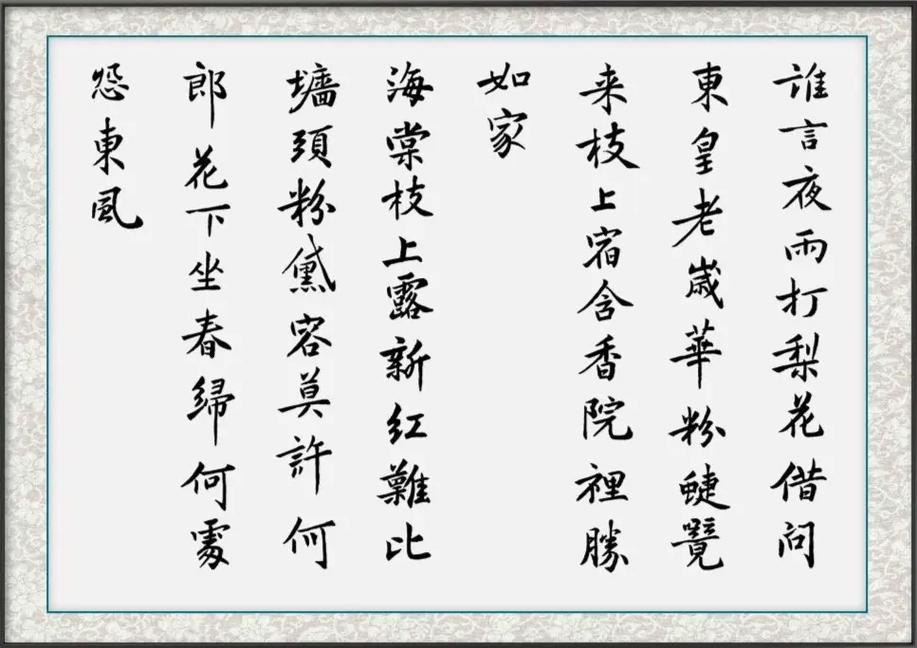 誰言夜雨打梨花借问
東皇老歲華粉蜨覺
来枝上宿含香院裡勝
如家
海棠枝上露新红難比
墙頭粉黛容莫許何
郎花下坐春歸何處
怨東風